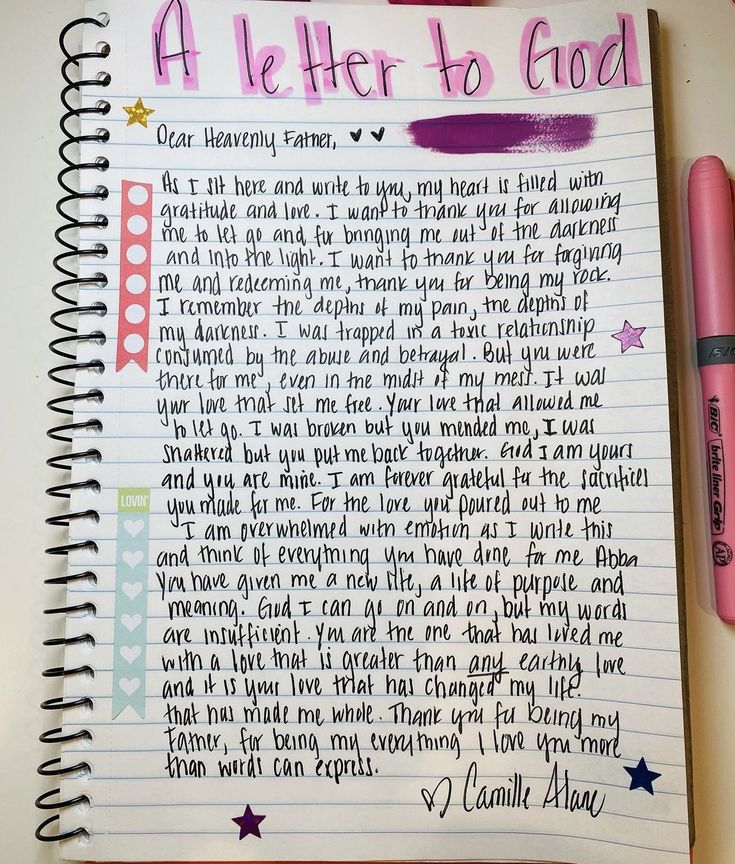 A letter to God
Dear Heavenly Father,
As I sit here and write to you, my heart is filled with
gratitude and love. I want to thank you for allowing
me to let go and for bringing me out of the darkness
and into the light. I want to thank you for forgiving
me and redeeming me, thank you for being my rock.
I remember the depths of my pain, the depths of
my darkness. I was trapped in a toxic relationship
consumed by the abuse and betrayal. But you were
there for me, even in the midst of my mess. It was
your love that set me free. Your love that allowed me
to let go. I was broken but you mended me, I was
shattered but you put me back together. God I am yours
and you are mine. I am forever grateful for the sacrifices
you made for me. For the love you poured out to me
LOVIN'
I am overwhelmed with emotion as I write this
and think of everything you have done for me Abba
You have given me a new life, a life of purpose and
meaning. God I can go on and on, but my words
are insufficient. You are the one that has loved me
with a love that is greater than any earthly love
and it is your love that has changed my life.
that has made me whole. Thank you for being my
Father, for being my everything I love you more
than words can express.
Camille Alane
BIC
BIC brite liner Grip
AP